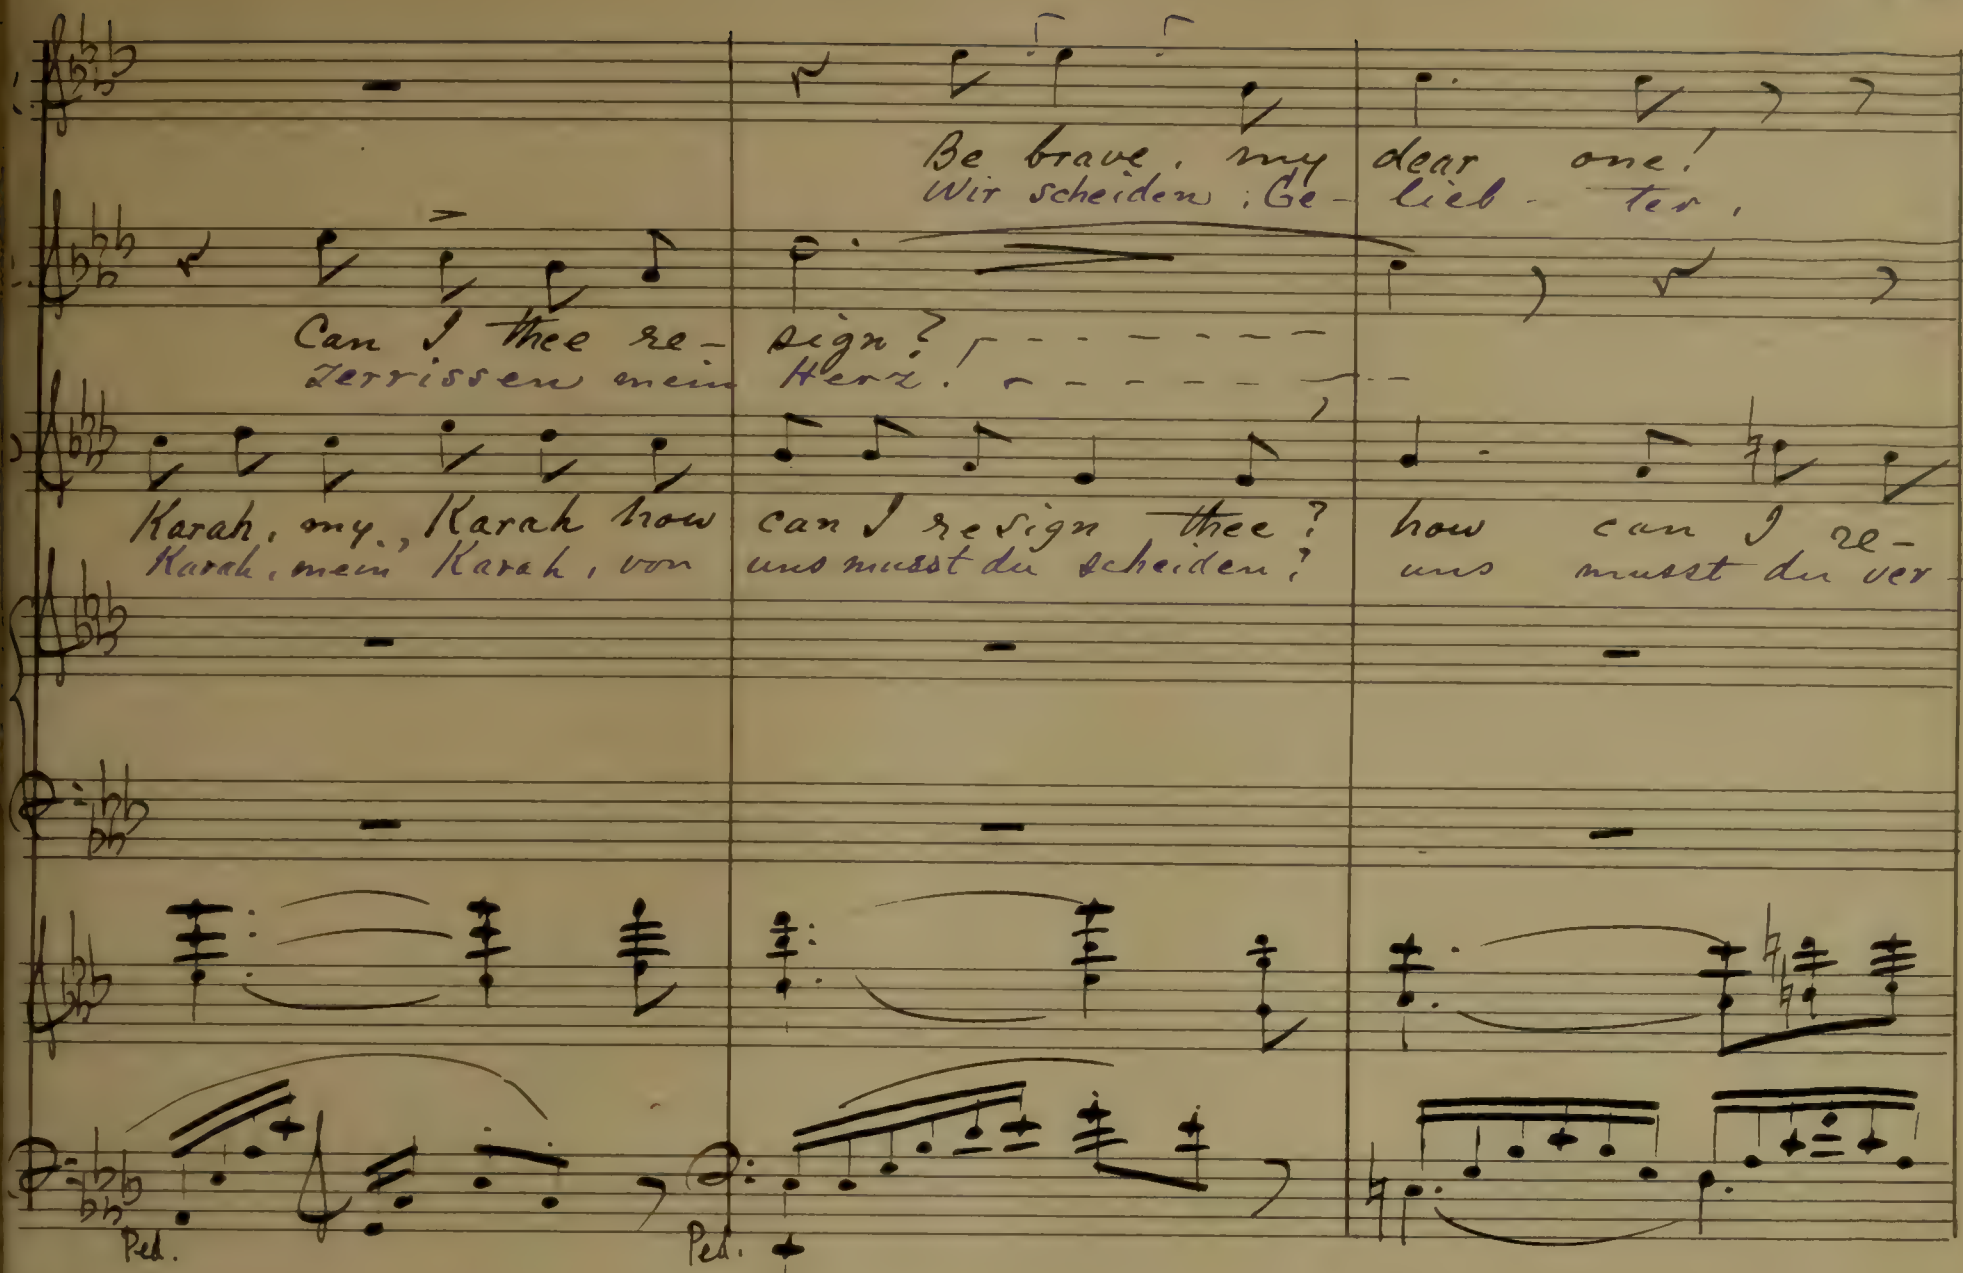 Be brave, my dear one!
Wir scheiden, Ge- lieb- ter,
Can I thee re- sign?
Zerrissen mein Herz!
Karah, my, Karah how can I resign thee? how can I re-
Karah, mein Karah, von uns musst du scheiden? uns musst du ver-
Ped. Ped.